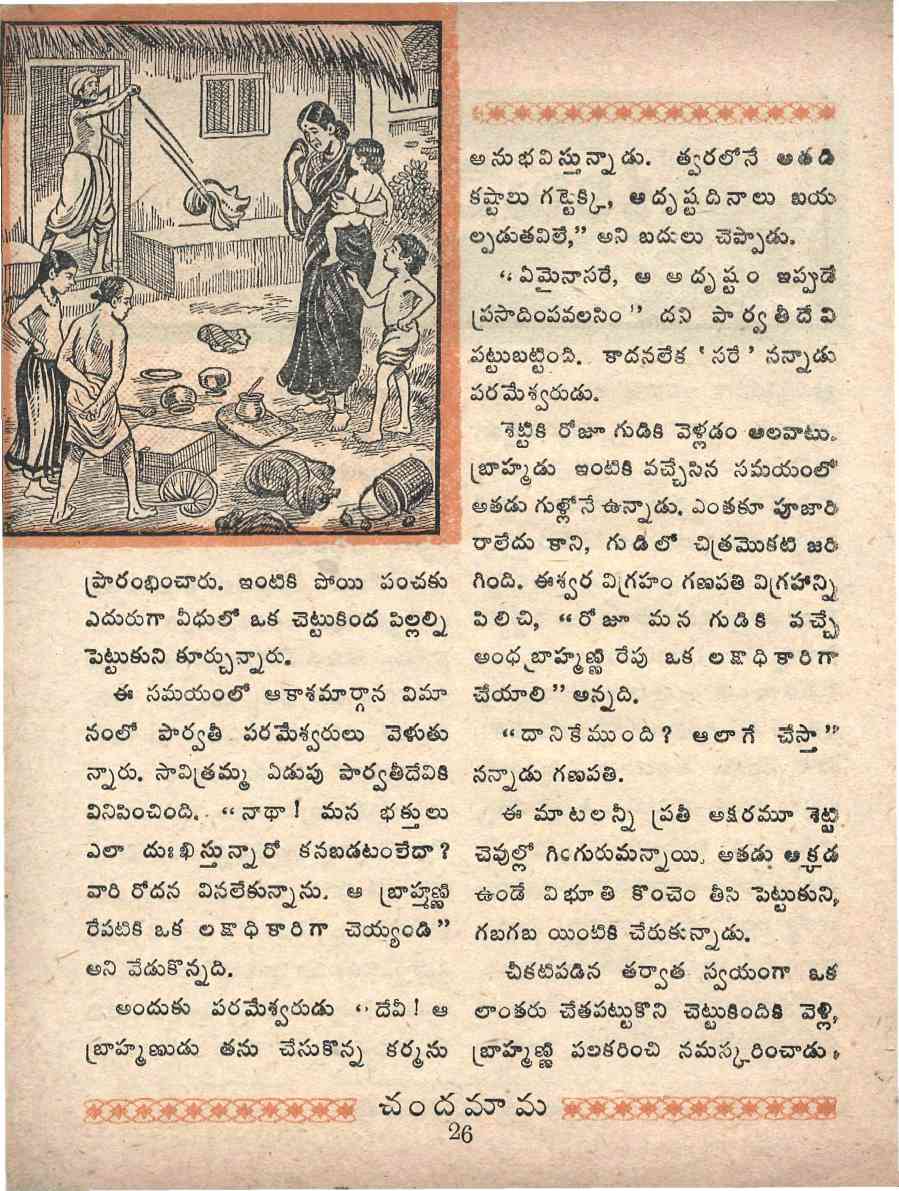 ప్రారంభించారు. ఇంటికి పోయి పంచకు
ఎదురుగా వీధులో ఒక చెట్టుకింద పిల్లల్ని
పెట్టుకుని కూర్చున్నారు.
ఈ సమయంలో ఆకాశమార్గాన విమా
నంలో పార్వతీ పరమేశ్వరులు వెళుతు
న్నారు. సావిత్రమ్మ ఏడుపు పార్వతీదేవికి
వినిపించింది. “నాథా! మన భక్తులు
ఎలా దుఃఖిస్తున్నారో కనబడటంలేదా?
వారి రోదన వినలేకున్నాను. ఆ బ్రాహ్మణ్ణి
రేపటికి ఒక లక్షాధికారిగా చెయ్యండి”
అని వేడుకొన్నది.
అందుకు పరమేశ్వరుడు “దేవీ! ఆ
బ్రాహ్మణుడు తను చేసుకొన్న కర్మను
అనుభవిస్తున్నాడు. త్వరలోనే అతడి
కష్టాలు గట్టెక్కి, అదృష్టదినాలు బయ
ల్పడుతవిలే,” అని బదులు చెప్పాడు.
“ఏమైనాసరే, ఆ అదృష్టం ఇప్పుడే
ప్రసాదింపవలసిం” దని పార్వతీదేవి
పట్టుబట్టింది. కాదనలేక ‘సరే’ నన్నాడు
పరమేశ్వరుడు.
శెట్టికి రోజూ గుడికి వెళ్లడం అలవాటు.
బ్రాహ్మడు ఇంటికి వచ్చేసిన సమయంలో
అతడు గుళ్లోనే ఉన్నాడు. ఎంతకూ పూజారి
రాలేదు కాని, గుడిలో చిత్రమొకటి జరి
గింది. ఈశ్వర విగ్రహం గణపతి విగ్రహాన్ని
పిలిచి, “రోజూ మన గుడికి వచ్చే
అంధబ్రాహ్మణ్ణి రేపు ఒక లక్షాధికారిగా
చేయాలి” అన్నది.
“దానికేముంది? అలాగే చేస్తా”
నన్నాడు గణపతి.
ఈ మాటలన్నీ ప్రతీ అక్షరమూ శెట్టి
చెవుల్లో గింగురుమన్నాయి. అతడు అక్కడ
ఉండే విభూతి కొంచెం తీసి పెట్టుకుని,
గబగబ యింటికి చేరుకున్నాడు.
చీకటిపడిన తర్వాత స్వయంగా ఒక
లాంతరు చేతపట్టుకొని చెట్టుకిందికి వెళ్లి,
బ్రాహ్మణ్ణి పలకరించి నమస్కరించాడు.
చందమామ
26